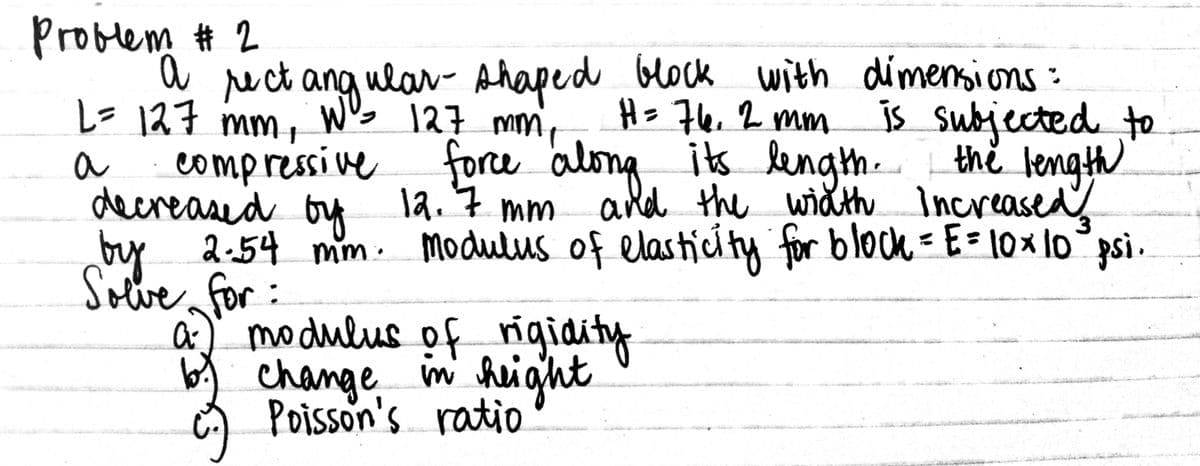 Problem # 2
a rectangular-shaped block with dimensions:
L= 127 mm, W= 127 mm, H= 76.2 mm is subjected to
a compressive force along its length. the length
decreased by 12.7 mm and the width increased
by 2.54 mm. Modulus of elasticity for block = E = 10x10³ psi.
Solve for:
a.) modulus of rigidity
b.) change in height
c.) Poisson's ratio